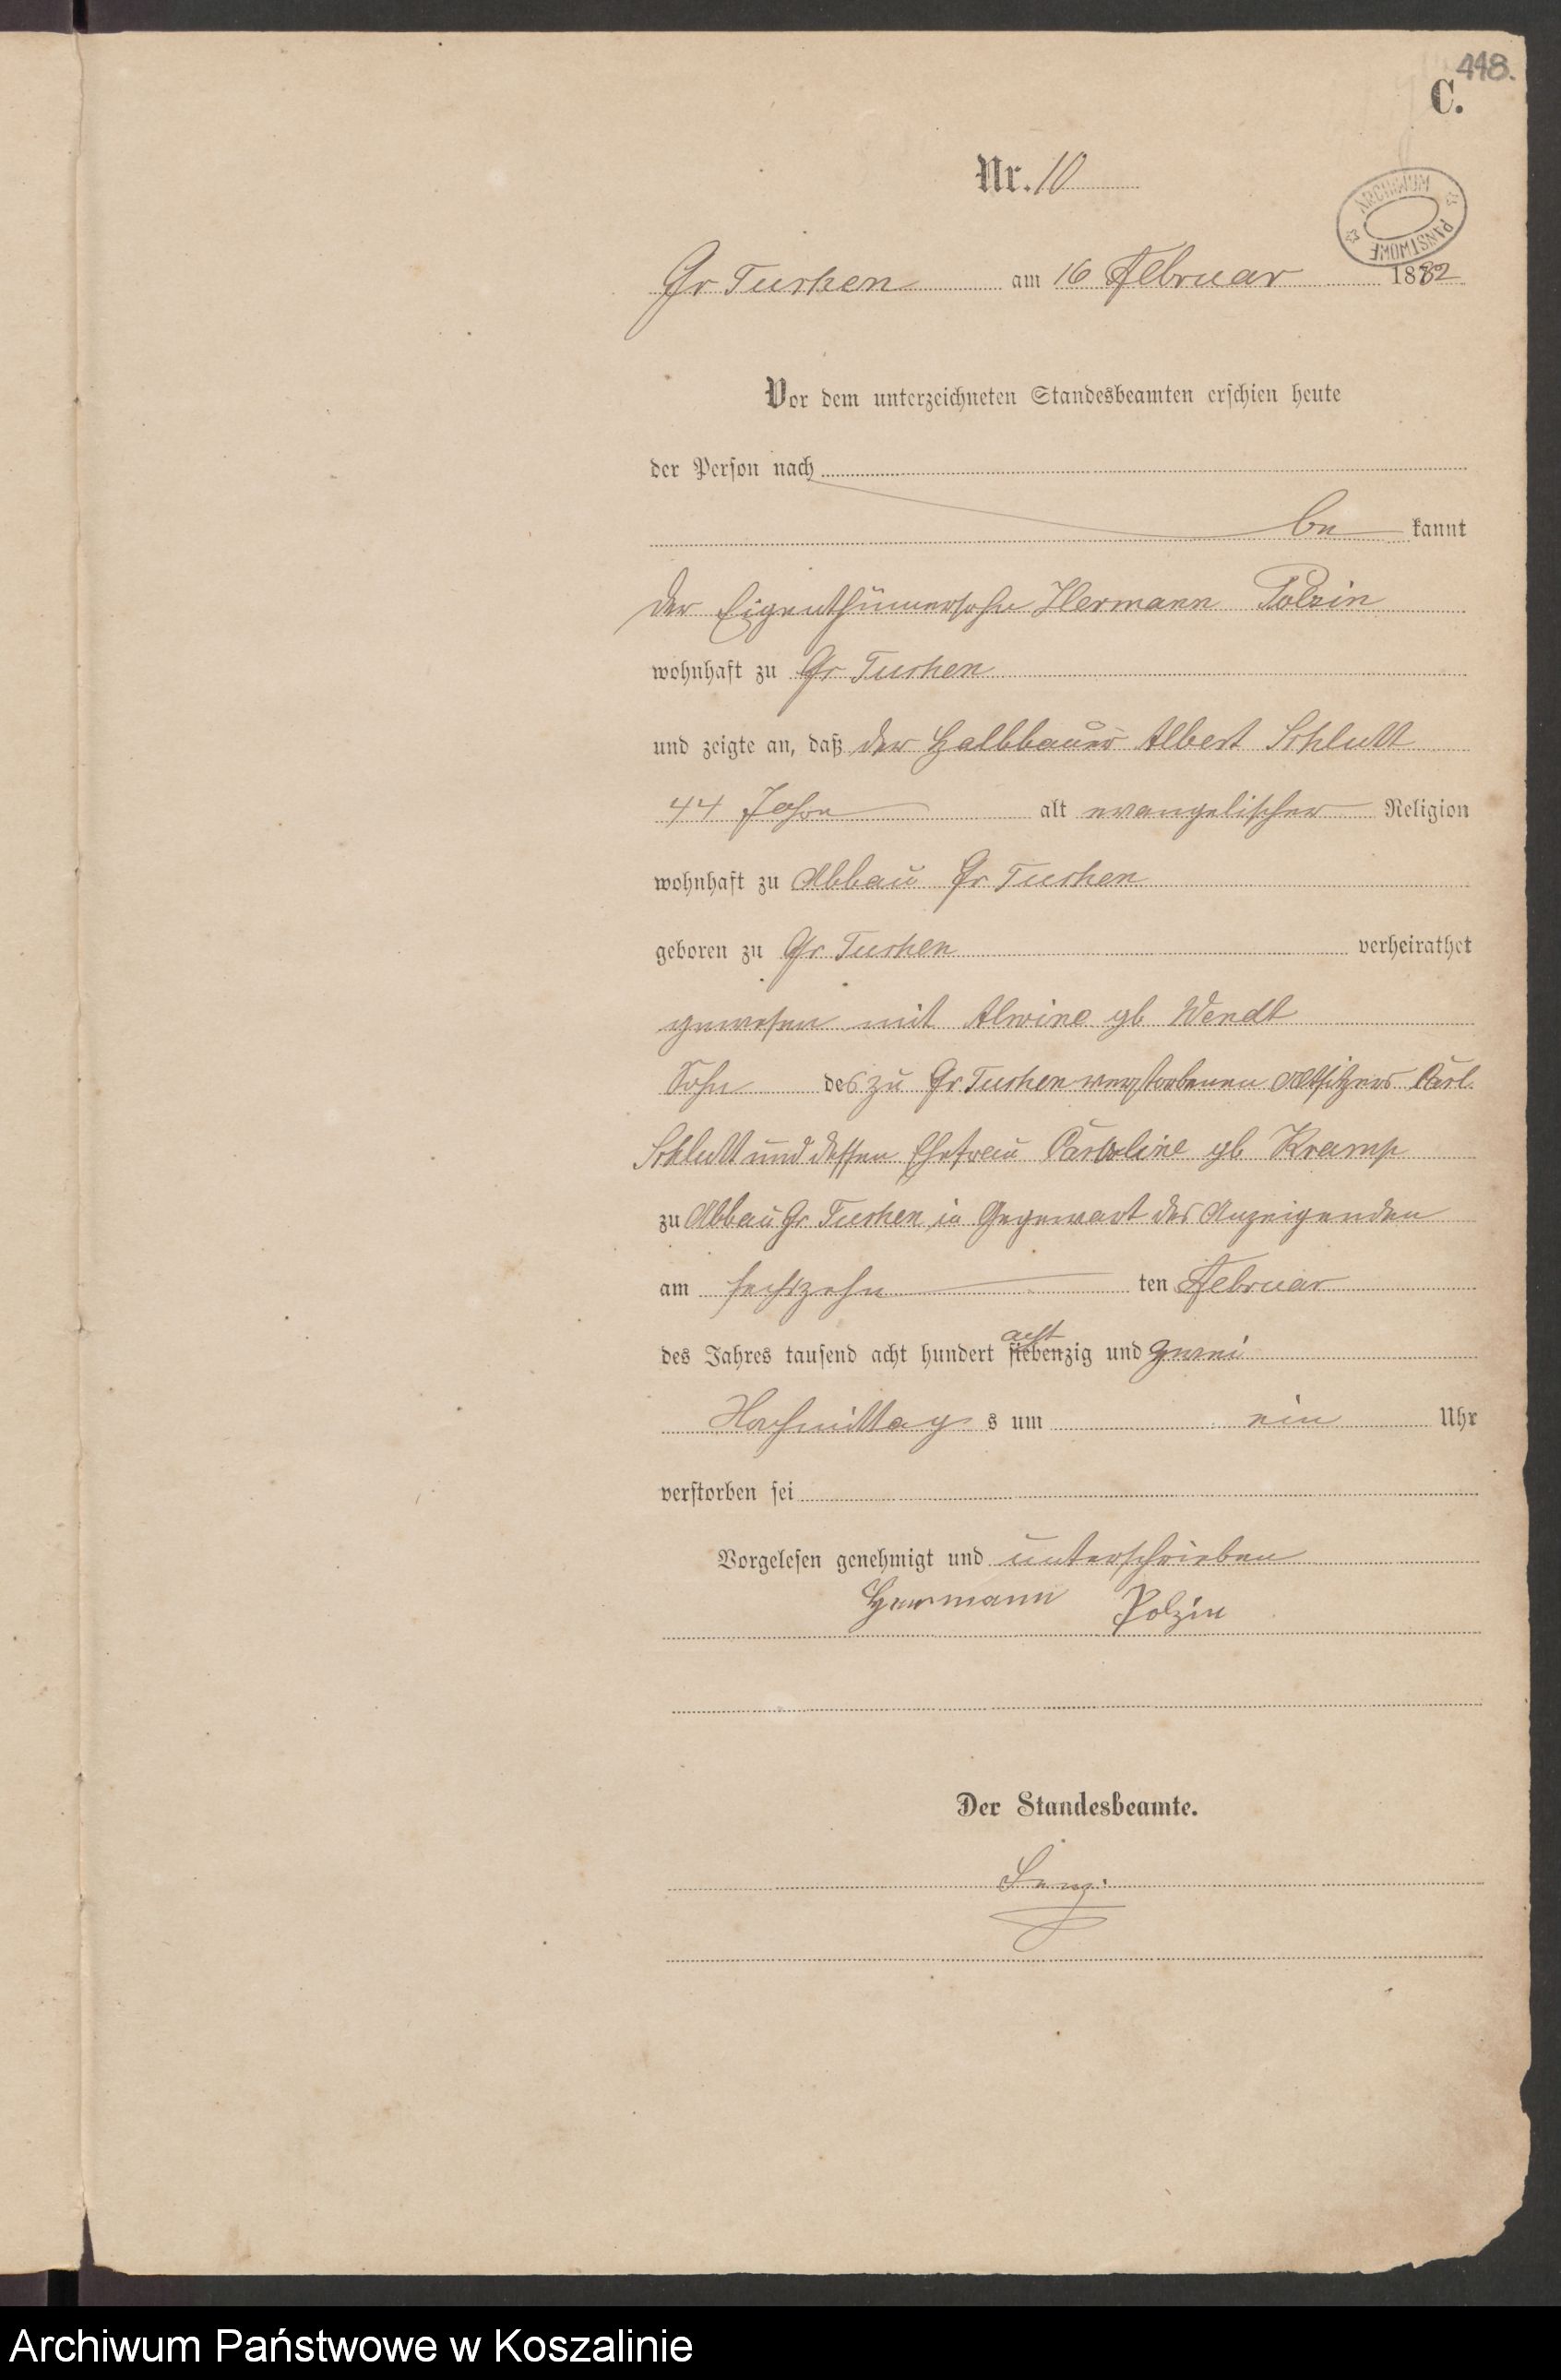 448.
C.
Nr. 10
ARCHIWUM PAŃSTWOWE
Gr Tuchen am 16 Februar 1882
Vor dem unterzeichneten Standesbeamten erschien heute
der Person nach
be kannt
der Eigenthümersohn Hermann Polzin
wohnhaft zu Gr Tuchen
und zeigte an, daß der Halbbauer Albert Schlutt
44 Jahre alt evangelischer Religion
wohnhaft zu Abbau Gr Tuchen
geboren zu Gr Tuchen verheirathet
gewesen mit Alwine gb Wendt
Sohn des zu Gr Tuchen verstorbenen Altsitzers Carl
Schlutt und dessen Ehefrau Caroline gb Kramp
zu Abbau Gr Tuchen in Gegenwart des Anzeigenden
am sechszehn ten Februar
des Jahres tausend acht hundert siebenzig acht und zwei
Nachmittag s um ein Uhr
verstorben sei
Vorgelesen genehmigt und unterschrieben
Herrmann Polzin
Der Standesbeamte.
Archiwum Państwowe w Koszalinie